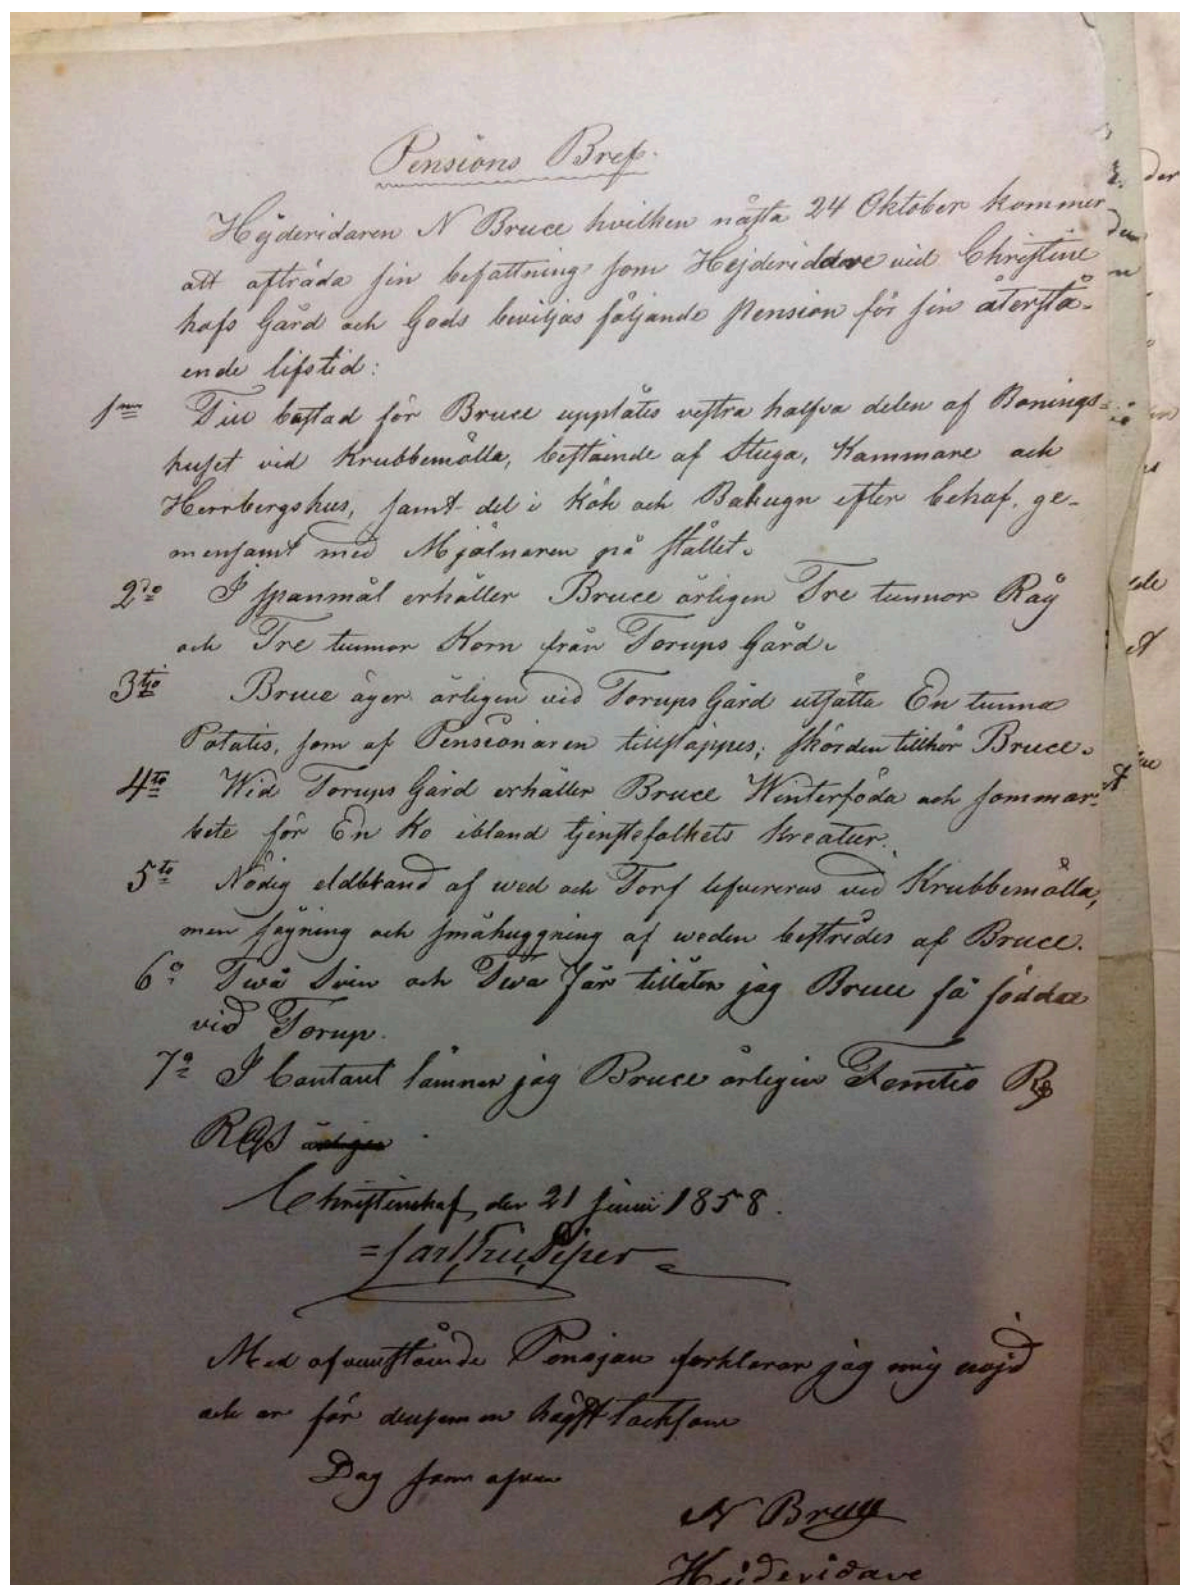 Pensions Bref.
Hejderidaren N Bruce hvilken nästa 24 Oktober kommer
att afträda sin befattning som Hejderiddare vid Christine
hofs Gård och Gods beviljas följande Pension för sin återstå-
ende lifstid:
1mo Till bostad för Bruce upplåtes vestra halfva delen af Bonings-
huset vid Krubbemölla, bestående af Stuga, Kammare och
Herrbergshus, samt del i Kök och Bakugn efter behof, ge-
mensamt med Mjölnaren på stället.
2do I spanmål erhåller Bruce årligen Tre tunnor Råg
och Tre tunnor Korn från Torups Gård.
3tio Bruce äger årligen vid Torups Gård utsätta En tunna
Potatis, som af Pensionären tillsläppes; skörden tillhör Bruce.
4to Wid Torups Gård erhåller Bruce Winterföda och sommar-
bete för En Ko ibland tjenstefolkets Kreatur.
5to Nödig eldbrand af wed och Torf lefvereras vid Krubbemölla,
men sågning och småhuggning af weden bestrides af Bruce.
6o Twå Svin och Twå Får tillåter jag Bruce få födda
vid Torup.
7o I Contant lämnar jag Bruce årligen Femtio
RGS årligen
Christinehof, den 21 Juni 1858.
=Carl Piper=
Med ofvanstående Pensjon forklarar jag mig nöjd
och er för densamma högst tacksam
Dag som ofvan
N Bruce
Hejderidare